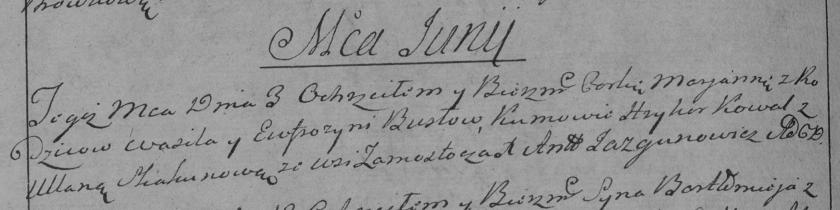 Mca Junij
Tegoż Mca Dnia 3 Ochrzciłem y Bierzm Corkę Marjannę z Ro
Dzicow Wasila y Ewfrozyni Busłow, Kumowie Hryhor Kowal z
Ulaną ze wsi Zamostocza X Antt Jazgunowicz
Ochrzciłem y Bierzm Syna Bartłomieja z